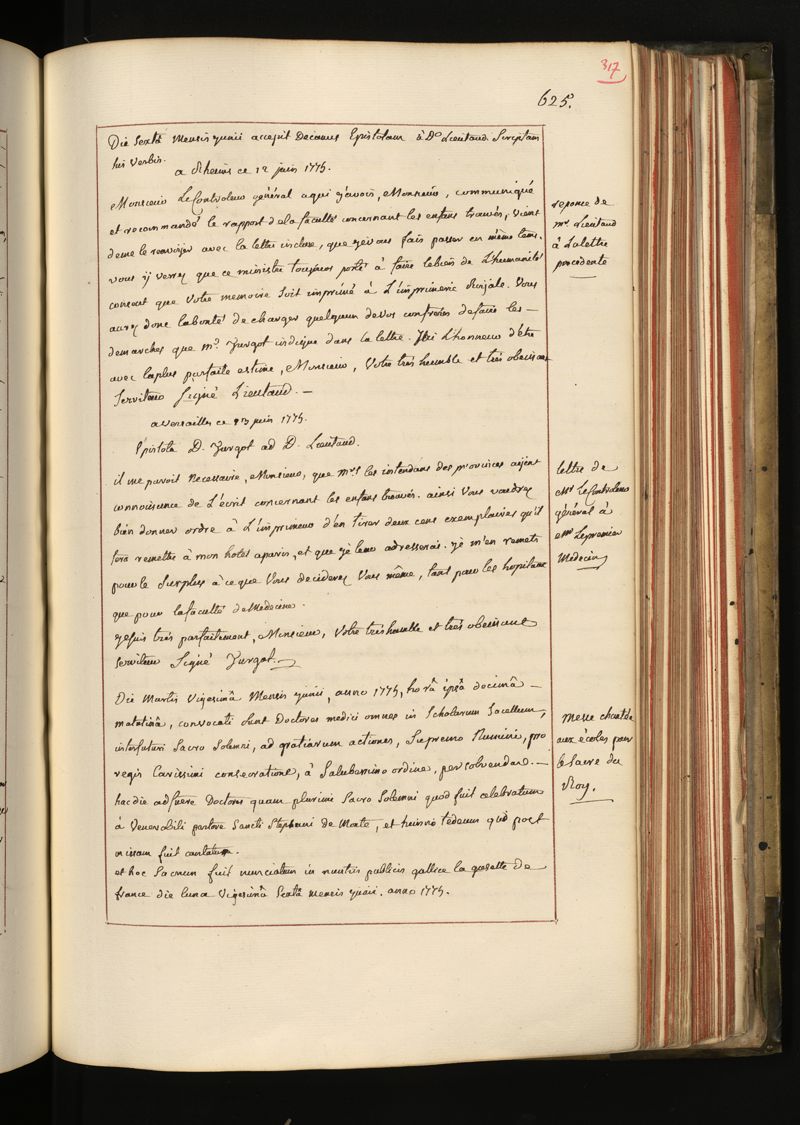 317
625.
Die sexta mensis junii accepit Decanus Epistolam à D.º Lieutaud scriptam
his verbis.
a Rheims ce 12 juin 1775.
Monsieur Le Controleur général a qui j'avois, Monsieur, communiqué
et recommandé le rapport dela faculté concernant les enfans trouvés, vient
deme le renvoyer avec la lettre incluse, que je vous fais passer en même tems.
vous y verrez que ce ministre toujours porté à faire lebien de L'humanité
consent que Votre memoire soit imprimé à L'imprimerie Roijale. Vous
aurez donc labonté de charger quelqu'un de vos confreres defaire les —
demarches que m.r Turgot indique dans sa lettre. J'ai L'honneur d'être
avec laplus parfaite estime, Monsieur, Votre très humble et très obeissant
Serviteur Signé Lieutaud. —
reponce de
m.r Lieutaud
à Lalettre
precedente
a versailles ce 13 juin 1775.
Epistola D. Turgot ad D. Lieutaud.
il me paroit Necessaire, Monsieur, que M.rs les intendans des provinces aijent
connoissance de L'écrit concernant les enfans trouvés. ainsi Vous voudrez
bien donner ordre à L'imprimeur d'en tirer deux cens exemplaires qu'il
fera remettre à mon hotel aparis, et que je leur adresserai. je m'en remets
pour le surplus à ce que Vous deciderez Vous même, tant pour les hopitaux
que pour lafaculté de Medecine.
je suis très parfaitement, Monsieur, Votre très humble et très obeissant
serviteur Signé Turgot.
lettre de
Mr. Le Controleur
général à
Mr Lepremier
Medecin
Die martis Vigesimâ mensis junii, anno 1775, horâ ipsâ decimâ —
matutinâ, convocati sunt Doctores medici omnes in Scholarum Sacellum,
interfuturi Sacro Solemni, ad gratiarum actiones, Supremo Numini, pro
regis Carissimi consecratione, à Saluberrimo ordine, persolvendas. —
hac die adfuere Doctores quam plurimi Sacro Solemni quod fuit celebratum
à Venerabili pastore Sancti Stephani de Monte, et hymno tedeum qui post
missam fuit cantatus.
et hoc Sacrum fuit nunciatum in nuntiis publicis gallice la gazette de
france die luna Vigesimâ Sextâ mensis junii. anno 1775.
Messe chantée
aux écoles pour
le Sacre du
Roy.